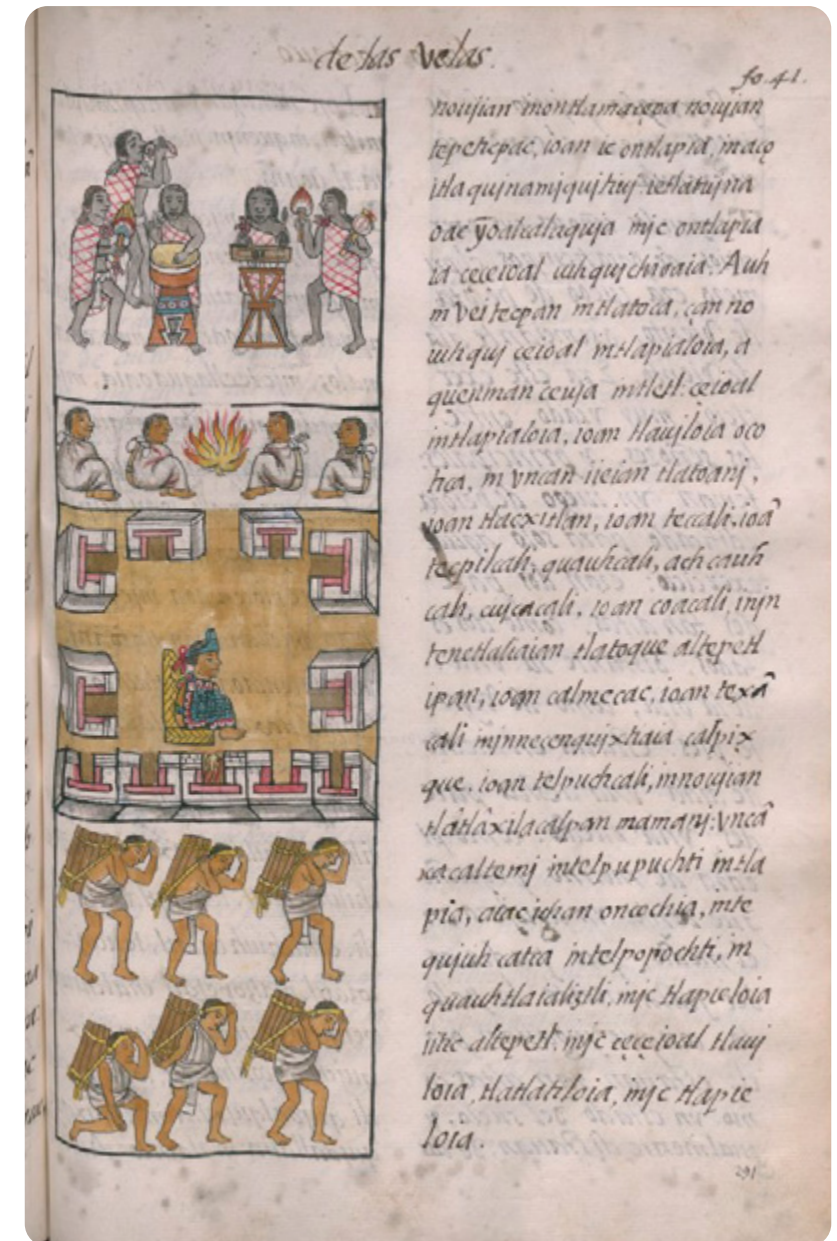 de las velas.
fo. 41.
noujian montlamacaya noujian
tepeticpac, ioan ic ontlapia, in
itla quinamiquizuj ietlatujna
oac yoalcalaquja mjc ontlapia
ia ceceioal iuhqujchioaia. Auh
in vei tecpan intlatoca, çan no
iuhquj ceioal intlapialoia, a
quenman ceuja intletl ceioal
intlapialoia, ioan tlaujloia oco
tica, in vncan iieian tlatoanj,
ioan tlacxitlan, ioan teccali, ioã
tecpilcali, quauhcali, achcauh
cali, cujcacali, ioan coacali, injn
tenetlaliaian tlatoque altepetl
ipan, ioan calmecac, ioan texã
cali minnecenquixtiaia calpix
que, ioan telpuchcali, innoujian
tlatlaxilacalpan mamanj: vncã
xacaltemj intelpupuchti intla
pia, aiac ichan oncochia, inte
qujuh catca intelpopochti, in
quauhtlaializtli, mjc tlapieloia
iitic altepetl, mjc ceceioal tlauj
loia, tlatlatiloia, mjc tlapie
loia.
291